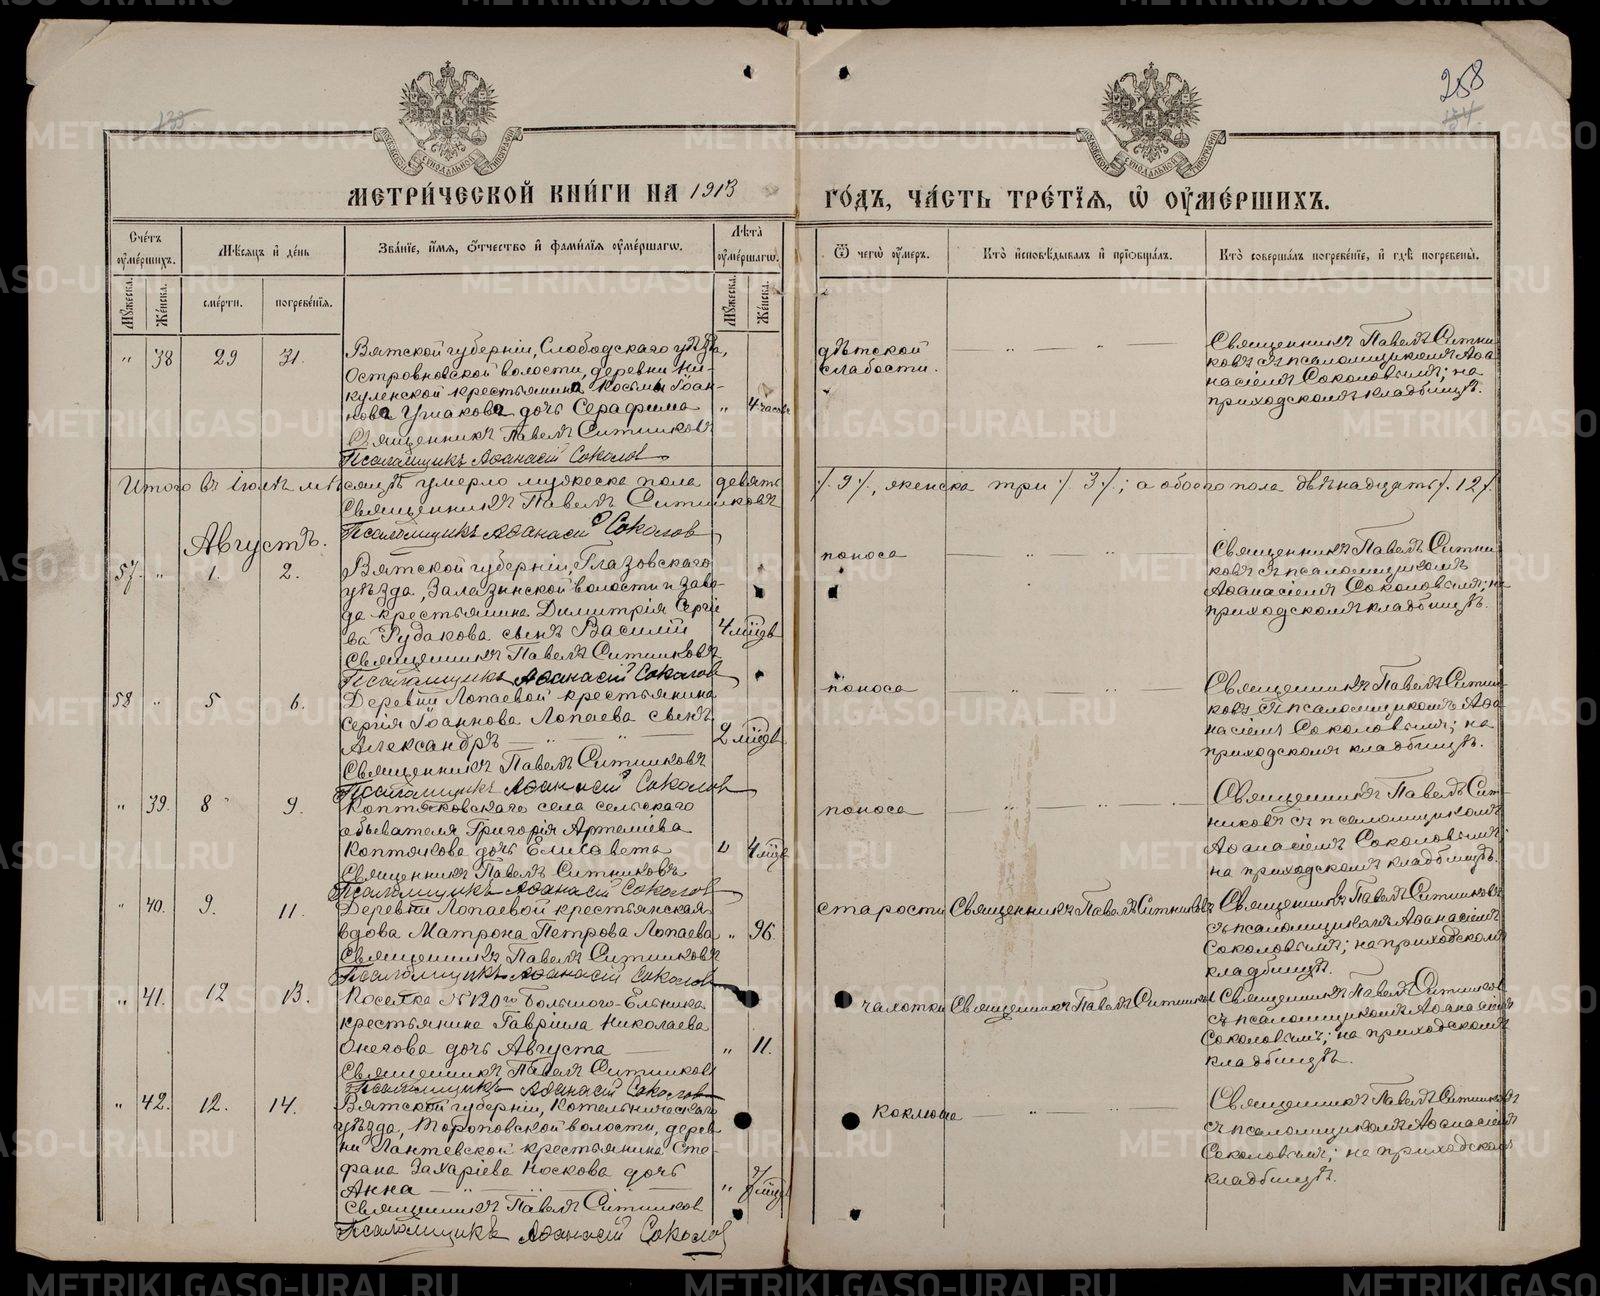 258
133
134
МЕТРИ́ЧЕСКОЙ КНИ́ГИ НА 1913
ГО́ДЪ, ЧА́СТЬ ТРЕ́ТЇѦ, Ѡ҆ ОУ҆МЕ́РШИХЪ.
Сче́тъ оу҆ме́ршихъ.
Мѣ́сѧцъ и҆ де́нь
Зва́нїе, и҆́мѧ, ѻ҆́тчество и҆ фами́лїѧ оу҆ме́ршагѡ.
Лѣ̀та оу҆ме́ршагѡ.
Ѿ чегѡ̀ оу҆́меръ.
Кто̀ и҆сповѣ́дывалъ и҆ прїѡбща́лъ.
Кто̀ соверша́лъ погребе́нїе, и҆ гдѣ̀ погребены̀.
Мꙋ́жеска.
Же́нска.
сме́рти.
погребе́нїѧ.
Мꙋ́жеска.
Же́нска.
" 38 29 31.
Вятской губерніи, Слободскаго уѣзда,
Островновской волости, деревни Ни-
куленской крестьянина Косьмы Іоан-
нова Ушакова дочь Серафима " 4 часовъ
Священникъ Павелъ Ситниковъ
Псаломщикъ Аѳанасій Соколов
дѣтской
слабости.
Священникъ Павелъ Ситни-
ковъ съ псаломщикомъ Аѳа-
насіемъ Соколовымъ; на
приходскомъ кладбищѣ.
Итого въ іюлѣ мѣсяцѣ умерло мужеска пола девять /. 9 /., женска три /. 3 /.; а обоего пола двѣнадцать /. 12 /.
Священникъ Павелъ Ситниковъ
Псаломщикъ Аѳанасій Соколов
Августъ.
57. " 1. 2.
Вятской губерніи, Глазовскаго
уѣзда, Залазнинской волости и заво-
да крестьянина Димитрія Сергіе
ва Рудакова сынъ Василій 4 мѣсяцевъ
Священникъ Павелъ Ситниковъ
Псаломщикъ Аѳанасій Соколов
поноса
Священникъ Павелъ Ситни-
ковъ съ псаломщикомъ
Аѳанасіемъ Соколовымъ; на
приходскомъ кладбищѣ.
58 " 5 6.
Деревни Лопаевой крестьянина
Сергія Іоаннова Лопаева сынъ
Александръ 2 мѣсяцевъ
Священникъ Павелъ Ситниковъ
Псаломщикъ Аѳанасій Соколов
поноса
Священникъ Павелъ Ситни-
ковъ съ псаломщикомъ Аѳа-
насіемъ Соколовымъ; на
приходскомъ кладбищѣ.
" 39. 8 9.
Коптяковскаго села сельскаго
обывателя Григорія Артеміева
Коптякова дочь Елисавета " 4 мѣсяцевъ
Священникъ Павелъ Ситниковъ
Псаломщикъ Аѳанасій Соколов
поноса
Священникъ Павелъ Сит-
никовъ съ псаломщикомъ
Аѳанасіемъ Соколовымъ;
на приходскомъ кладбищѣ.
" 40. 9. 11.
Деревни Лопаевой крестьянская
вдова Матрона Петрова Лопаева " 96.
Священникъ Павелъ Ситниковъ
Псаломщикъ Аѳанасій Соколов
старости
Священникъ Павелъ Ситниковъ
Священникъ Павелъ Ситниковъ
съ псаломщикомъ Аѳанасіемъ
Соколовымъ; на приходскомъ
кладбищѣ.
" 41. 12 13.
Поселка № 120го Большого-Ельника
крестьянина Гавріила Николаева
Онегова дочь Августа " 11.
Священникъ Павелъ Ситников
Псаломщикъ Аѳанасій Соколов
чахотки
Священникъ Павелъ Ситников
Священникъ Павелъ Ситников
съ псаломщикомъ Аѳанасіемъ
Соколовымъ; на приходскомъ
кладбищѣ.
" 42. 12. 14.
Вятской губерніи, Котельническаго
уѣзда, Тороповской волости, дерев
ни Лаптевской крестьянина Сте-
фана Захаріева Носкова дочь
Анна "
Священникъ Павелъ Ситников
Псаломщикъ Аѳанасій Соколов
коклюша
Священникъ Павелъ Ситниковъ
съ псаломщикомъ Аѳанасіемъ
Соколовымъ; на приходскомъ
кладбищѣ.
METRIKI.GASO-URAL.RU